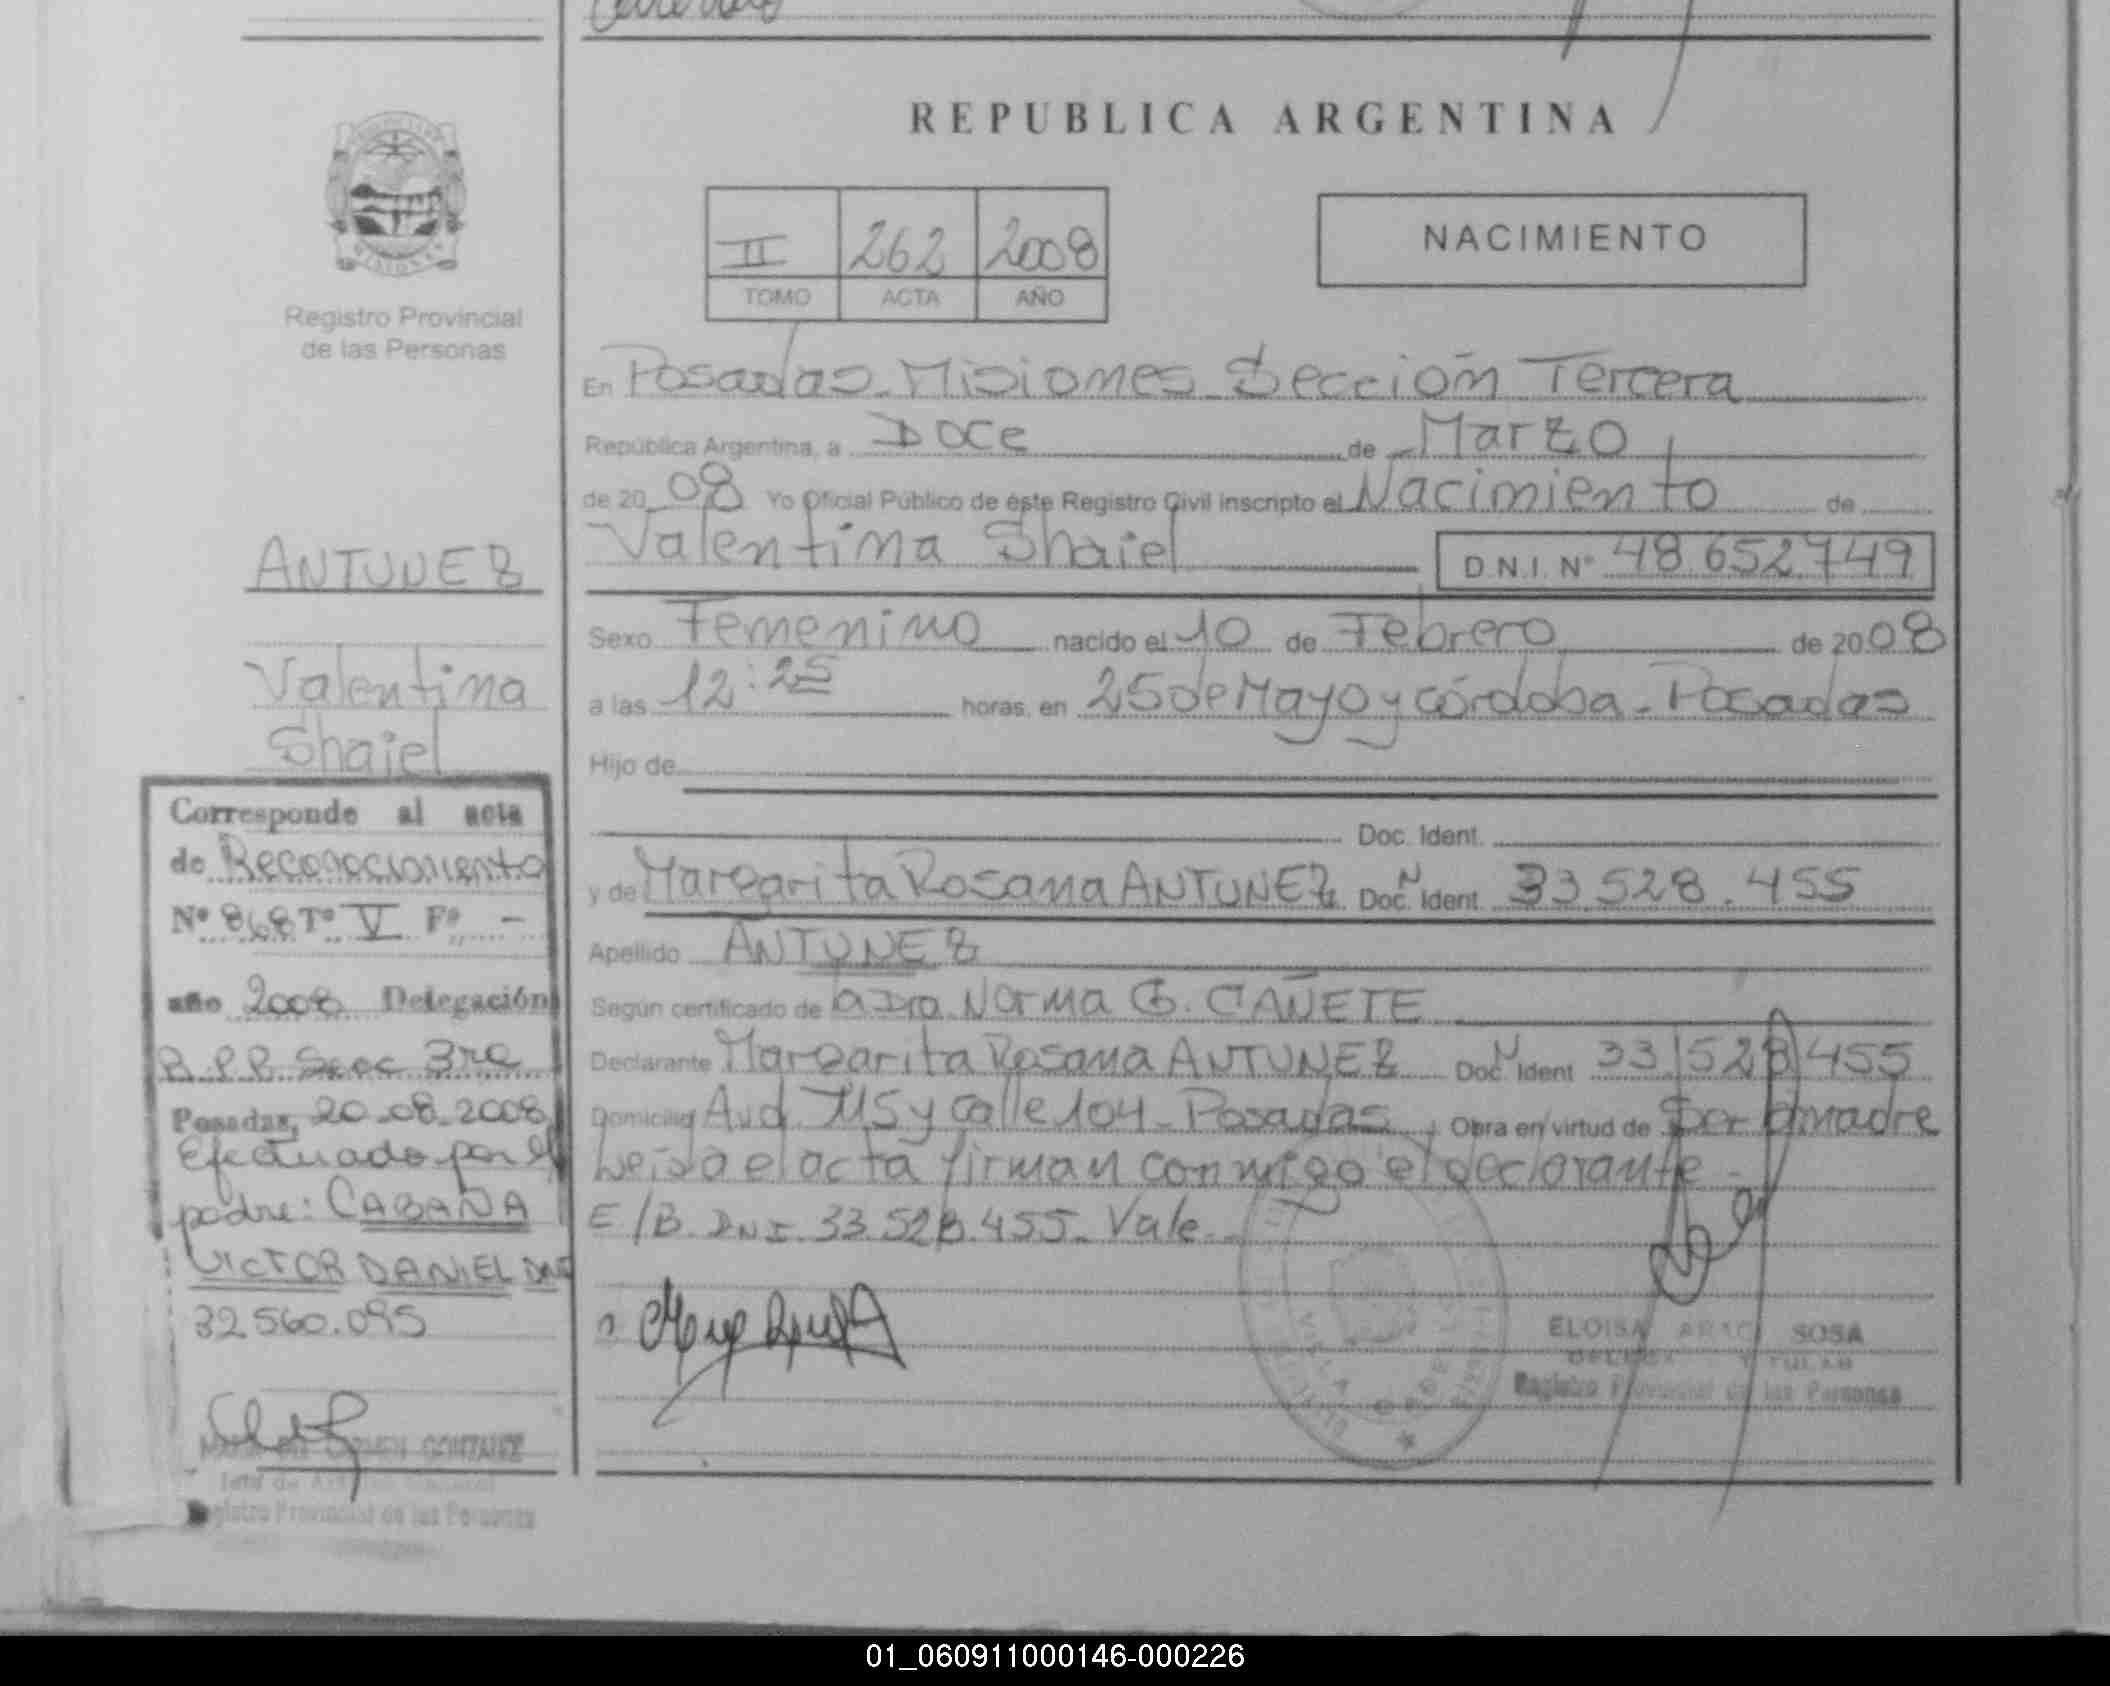 REPUBLICA ARGENTINA
II 262 2008
TOMO ACTA AÑO
NACIMIENTO
Registro Provincial
de las Personas
En Posadas - Misiones - Sección Tercera
República Argentina, a Doce de Marzo
de 20 08 Yo Oficial Público de éste Registro Civil inscripto el Nacimiento de
Valentina Shaiel D.N.I. Nº 48.652.749
Sexo Femenino nacido el 10 de Febrero de 20 08
a las 12:25 horas, en 25 de Mayo y Córdoba - Posadas
Hijo de
Doc. Ident.
y de Margarita Rosana ANTUNEZ Doc. N Ident. 33.528.455
Apellido ANTUNEZ
Según certificado de la Dra. Norma G. CAÑETE
Declarante Margarita Rosana ANTUNEZ Doc. N Ident 33.528.455
Domicilio Avd. 115 y calle 104 - Posadas Obra en virtud de Ser la madre
Leida el acta firman conmigo el declarante -
E/B. DNI. 33.528.455. Vale.
ELOISA ARACI SOSA
Registro Provincial de las Personas
ANTUNEZ
Valentina
Shaiel
Corresponde al acta
de Reconocimiento
Nº 868 Tº V Fº -
año 2008 Delegación
R.P.P. Secc 3ra
Posadas, 20-08-2008
Efectuado por el
padre: CABAÑA
VICTOR DANIEL DNI
32560.095
CARMEN GONZALEZ
Registro Provincial de las Personas
01_060911000146-000226